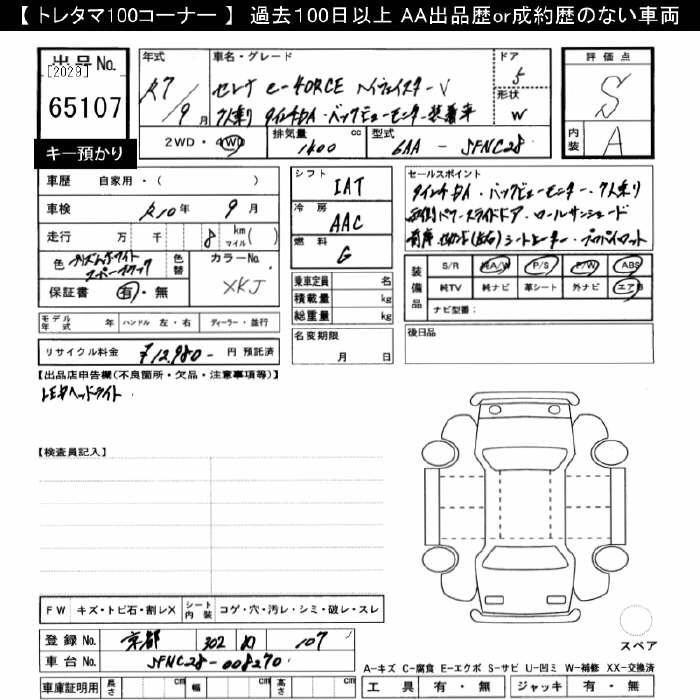 【 トレタマ100コーナー 】 過去100日以上 AA出品歴or成約歴のない車両
出品No.
[2029]
65107
キー預かり
年式
R7
9月
車名・グレード
セレナ e-FORCE ハイウェイスターV
7人乗り 9インチDA・バックビューモニター装着車
ドア
5
形状
W
評価点
S
内装
A
2WD・4WD
排気量
1400 cc
型式
6AA - SFNC28
車歴 自家用・( )
車検 R10年 9月
走行 万 千 8 km マイル( )
色 プリズムホワイト
スーパーブラック
色替
カラーNo.
XKJ
保証書 有・無
シフト
IAT
冷房
AAC
燃料
G
乗車定員 名
積載量 kg
総重量 kg
セールスポイント
9インチDA・バックビューモニター・7人乗り
両側パワースライドドア・ロールサンシェード
シートヒーター・プロパイロット
装備品
S/R 純A/W P/S P/W ABS
純TV 純ナビ 革シート 外ナビ エアB
ナビ型番:
モデル年式 年 ハンドル 左・右 ディーラー・並行
名変期限
月 日
後日品
リサイクル料金 ¥12,980- 円 預託済
【出品店申告欄(不良箇所・欠品・注意事項等)】
LEDヘッドライト
【検査員記入】
FW キズ・トビ石・割レX シート内装 コゲ・穴・汚レ・シミ・破レ・スレ
登録No. 京都 302 107
車台No. SFNC28-008270
車庫証明用 長さ cm 幅 cm 高さ cm
スペア
A-キズ C-腐食 E-エクボ S-サビ U-凹ミ W-補修 XX-交換済
工具 有・無 ジャッキ 有・無